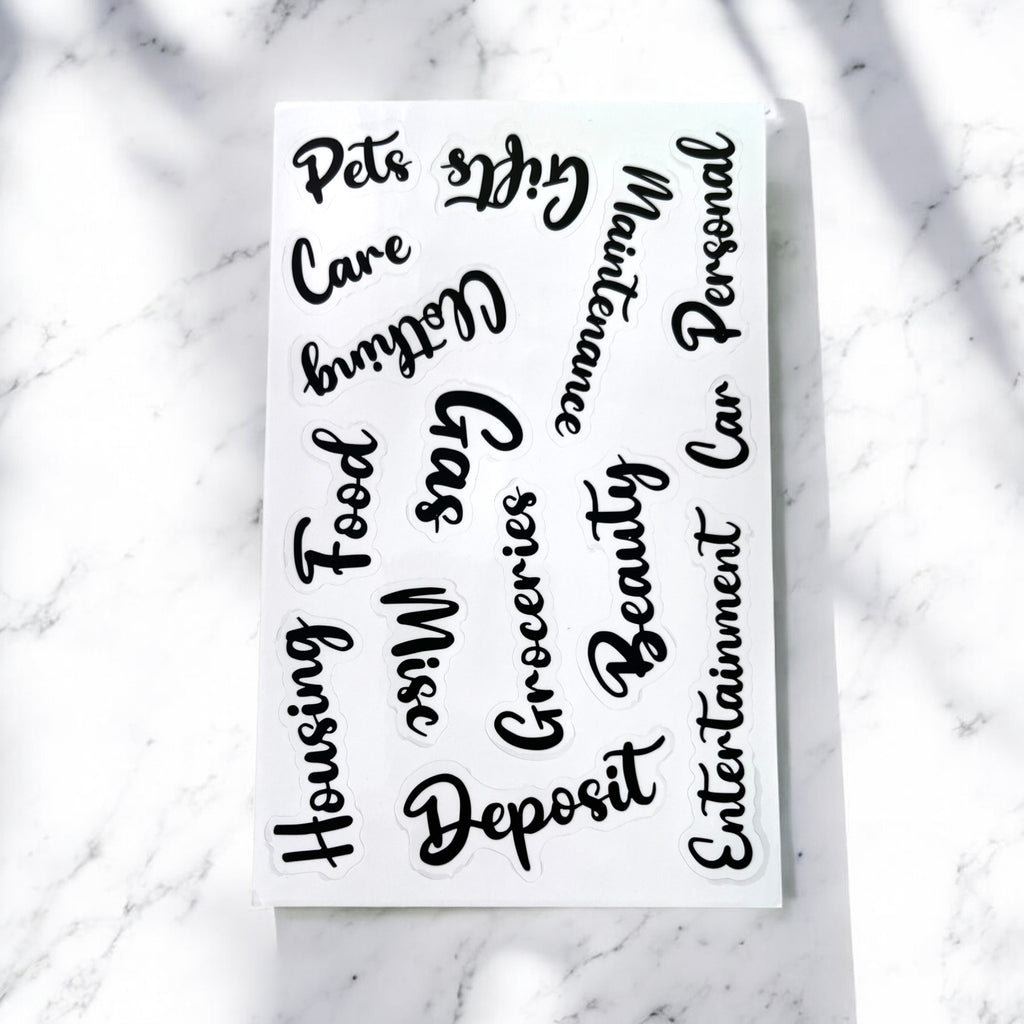 Pets
Gifts
Maintenance
Personal
Care
Clothing
Gas
Car
Food
Beauty
Groceries
Entertainment
Misc
Housing
Deposit